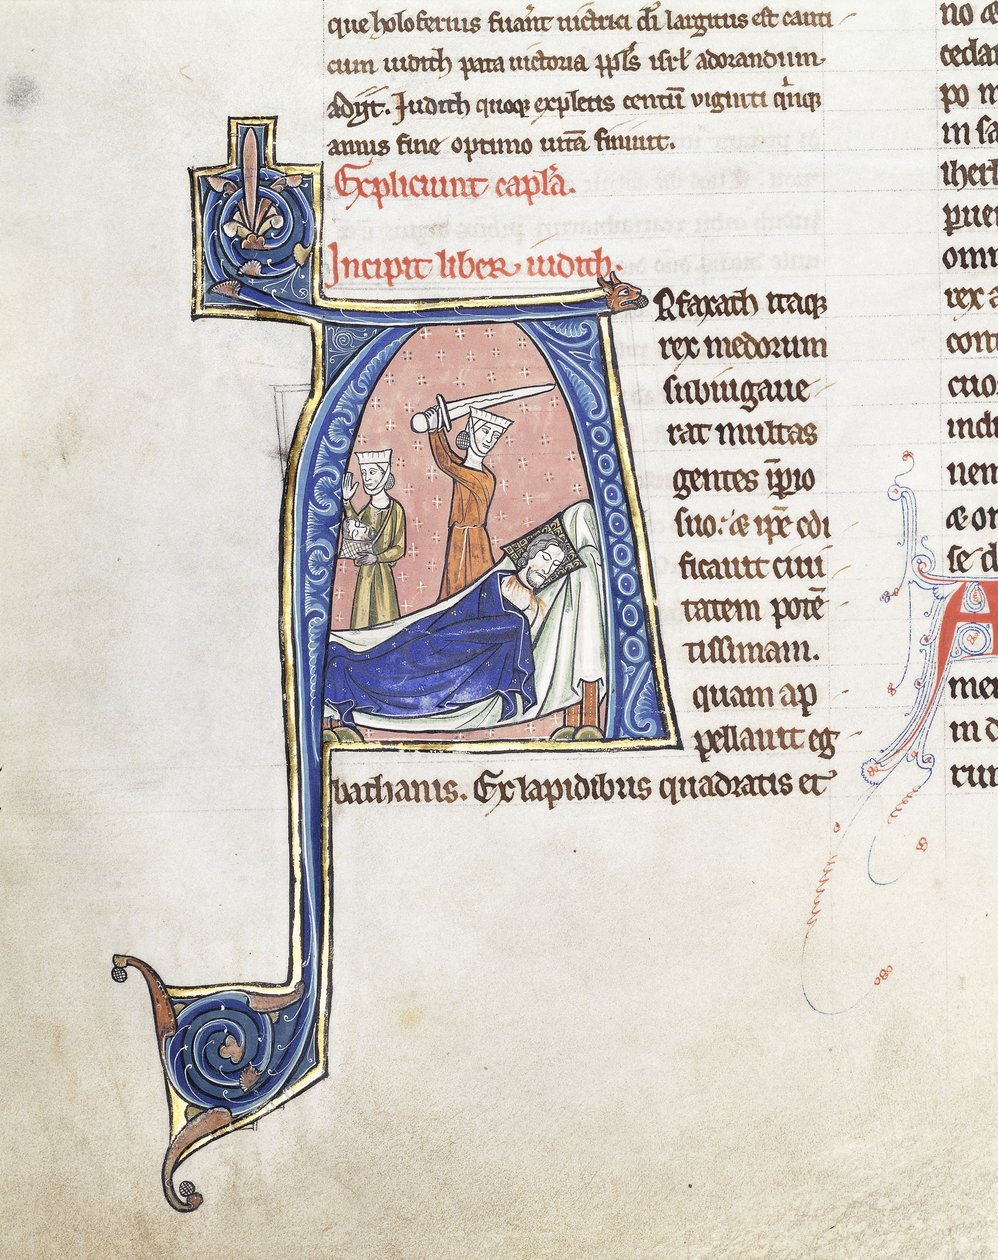 que holofernis fuãnt uictrici dñi largitus est canti
cum iudith pata uictoria ppl̃s isrl̃ adorandum
Adijt. Judith quoq; expletis centũ uiginti qñq;
annis fine optimo uitã finiuit.
Expliciunt capl̃a.
Incipit liber iudith.
ARfaxath itaq;
rex medorum
subiugaue
rat multas
gentes ĩpio
suo: & ip̃e edi
ficauit ciui
tatem potẽ
tissimam.
quam ap
pellauit eg
bathanis. Ex lapidibus quadratis et
no
cedar
po
in sa
iherl
puer
omni
rex a
cuo
indi
uen
& or
se d
A
mer
in d